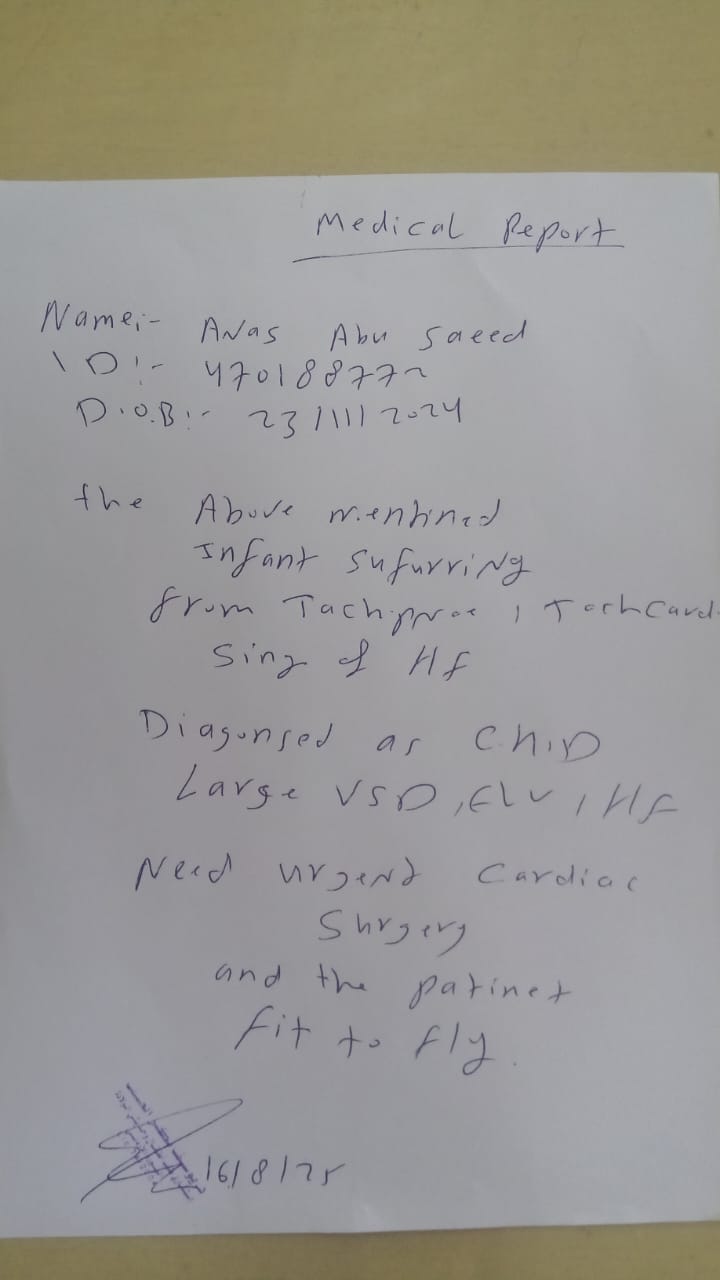 Medical Report
Name:- ANas Abu Saeed
ID:- 470188772
D.O.B:- 23/11/2024
the Above mentined
Infant sufurring
from Tachpnoe, TachCard
Sing of HF
Diagunsed as CHD
Large VSD, ELV, HF
Need urgent Cardiac
Shrgery
and the patinet
fit to fly.
16/8/25